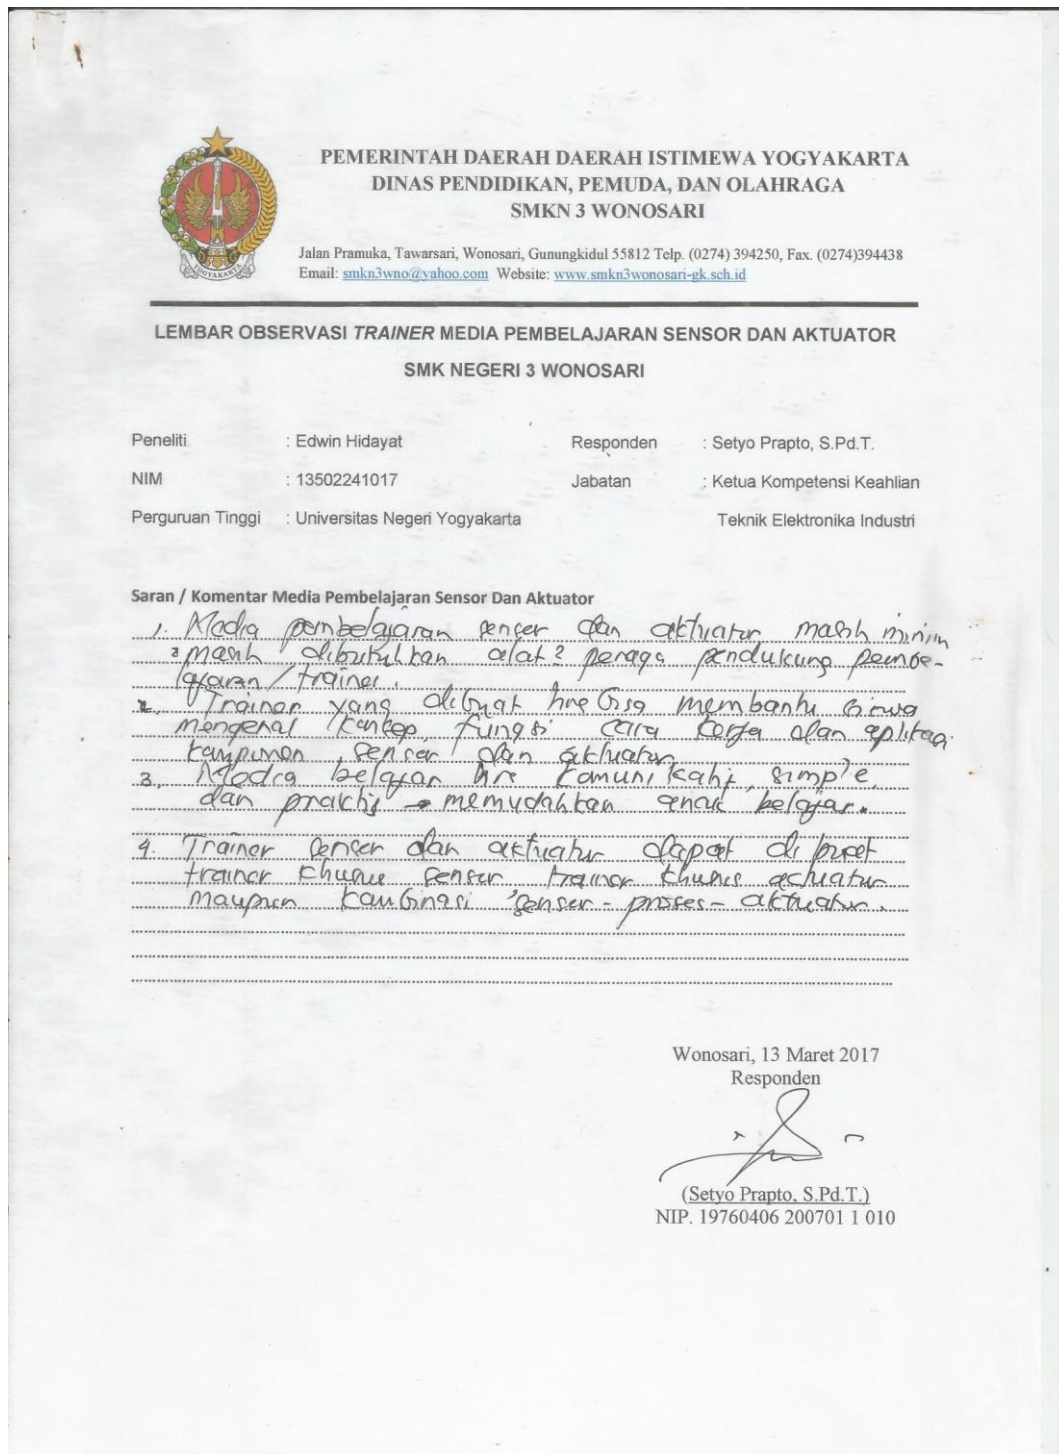 YOGYAKARTA
PEMERINTAH DAERAH DAERAH ISTIMEWA YOGYAKARTA
DINAS PENDIDIKAN, PEMUDA, DAN OLAHRAGA
SMKN 3 WONOSARI
Jalan Pramuka, Tawarsari, Wonosari, Gunungkidul 55812 Telp. (0274) 394250, Fax. (0274)394438
Email: smkn3wno@yahoo.com Website: www.smkn3wonosari-gk.sch.id
LEMBAR OBSERVASI TRAINER MEDIA PEMBELAJARAN SENSOR DAN AKTUATOR
SMK NEGERI 3 WONOSARI
Peneliti : Edwin Hidayat Responden : Setyo Prapto, S.Pd.T.
NIM : 13502241017 Jabatan : Ketua Kompetensi Keahlian
Perguruan Tinggi : Universitas Negeri Yogyakarta Teknik Elektronika Industri
Saran / Komentar Media Pembelajaran Sensor Dan Aktuator
1. Media pembelajaran sensor dan aktuator masih minim
masih dibutuhkan alat2 peraga pendukung pembe-
lajaran / trainer.
2. Trainer yang dibuat bisa membantu siswa
mengenal konsep, fungsi cara kerja dan aplikasi
komponen, sensor dan aktuator
3. Media belajar komunikatif, simple,
dan praktis → memudahkan anak belajar.
4. Trainer sensor dan aktuator dapat di buat
trainer khusus sensor trainer khusus actuator
maupun kombinasi sensor - proses - aktuator.
Wonosari, 13 Maret 2017
Responden
(Setyo Prapto, S.Pd.T.)
NIP. 19760406 200701 1 010